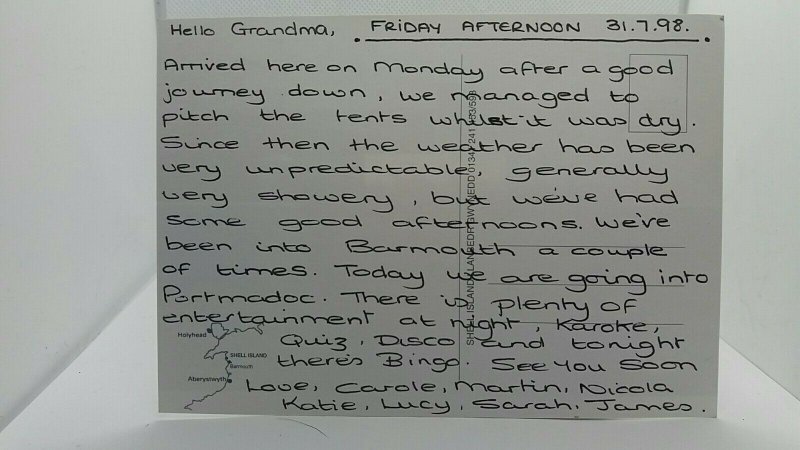 Hello Grandma, FRIDAY AFTERNOON 31.7.98.
Arrived here on Monday after a good
journey down, we managed to
pitch the tents whilst it was dry.
Since then the weather has been
very unpredictable, generally
very showery, but we've had
some good afternoons. We've
been into Barmouth a couple
of times. Today we are going into
Portmadoc. There is plenty of
entertainment at night, Karoke,
Quiz, Disco and tonight
there's Bingo. See You Soon
Love, Carole, Martin, Nicola
Katie, Lucy, Sarah, James.
Holyhead
SHELL ISLAND
Barmouth
Aberystwyth
SHELL ISLAND, LLANBEDR, GWYNEDD 01341 241